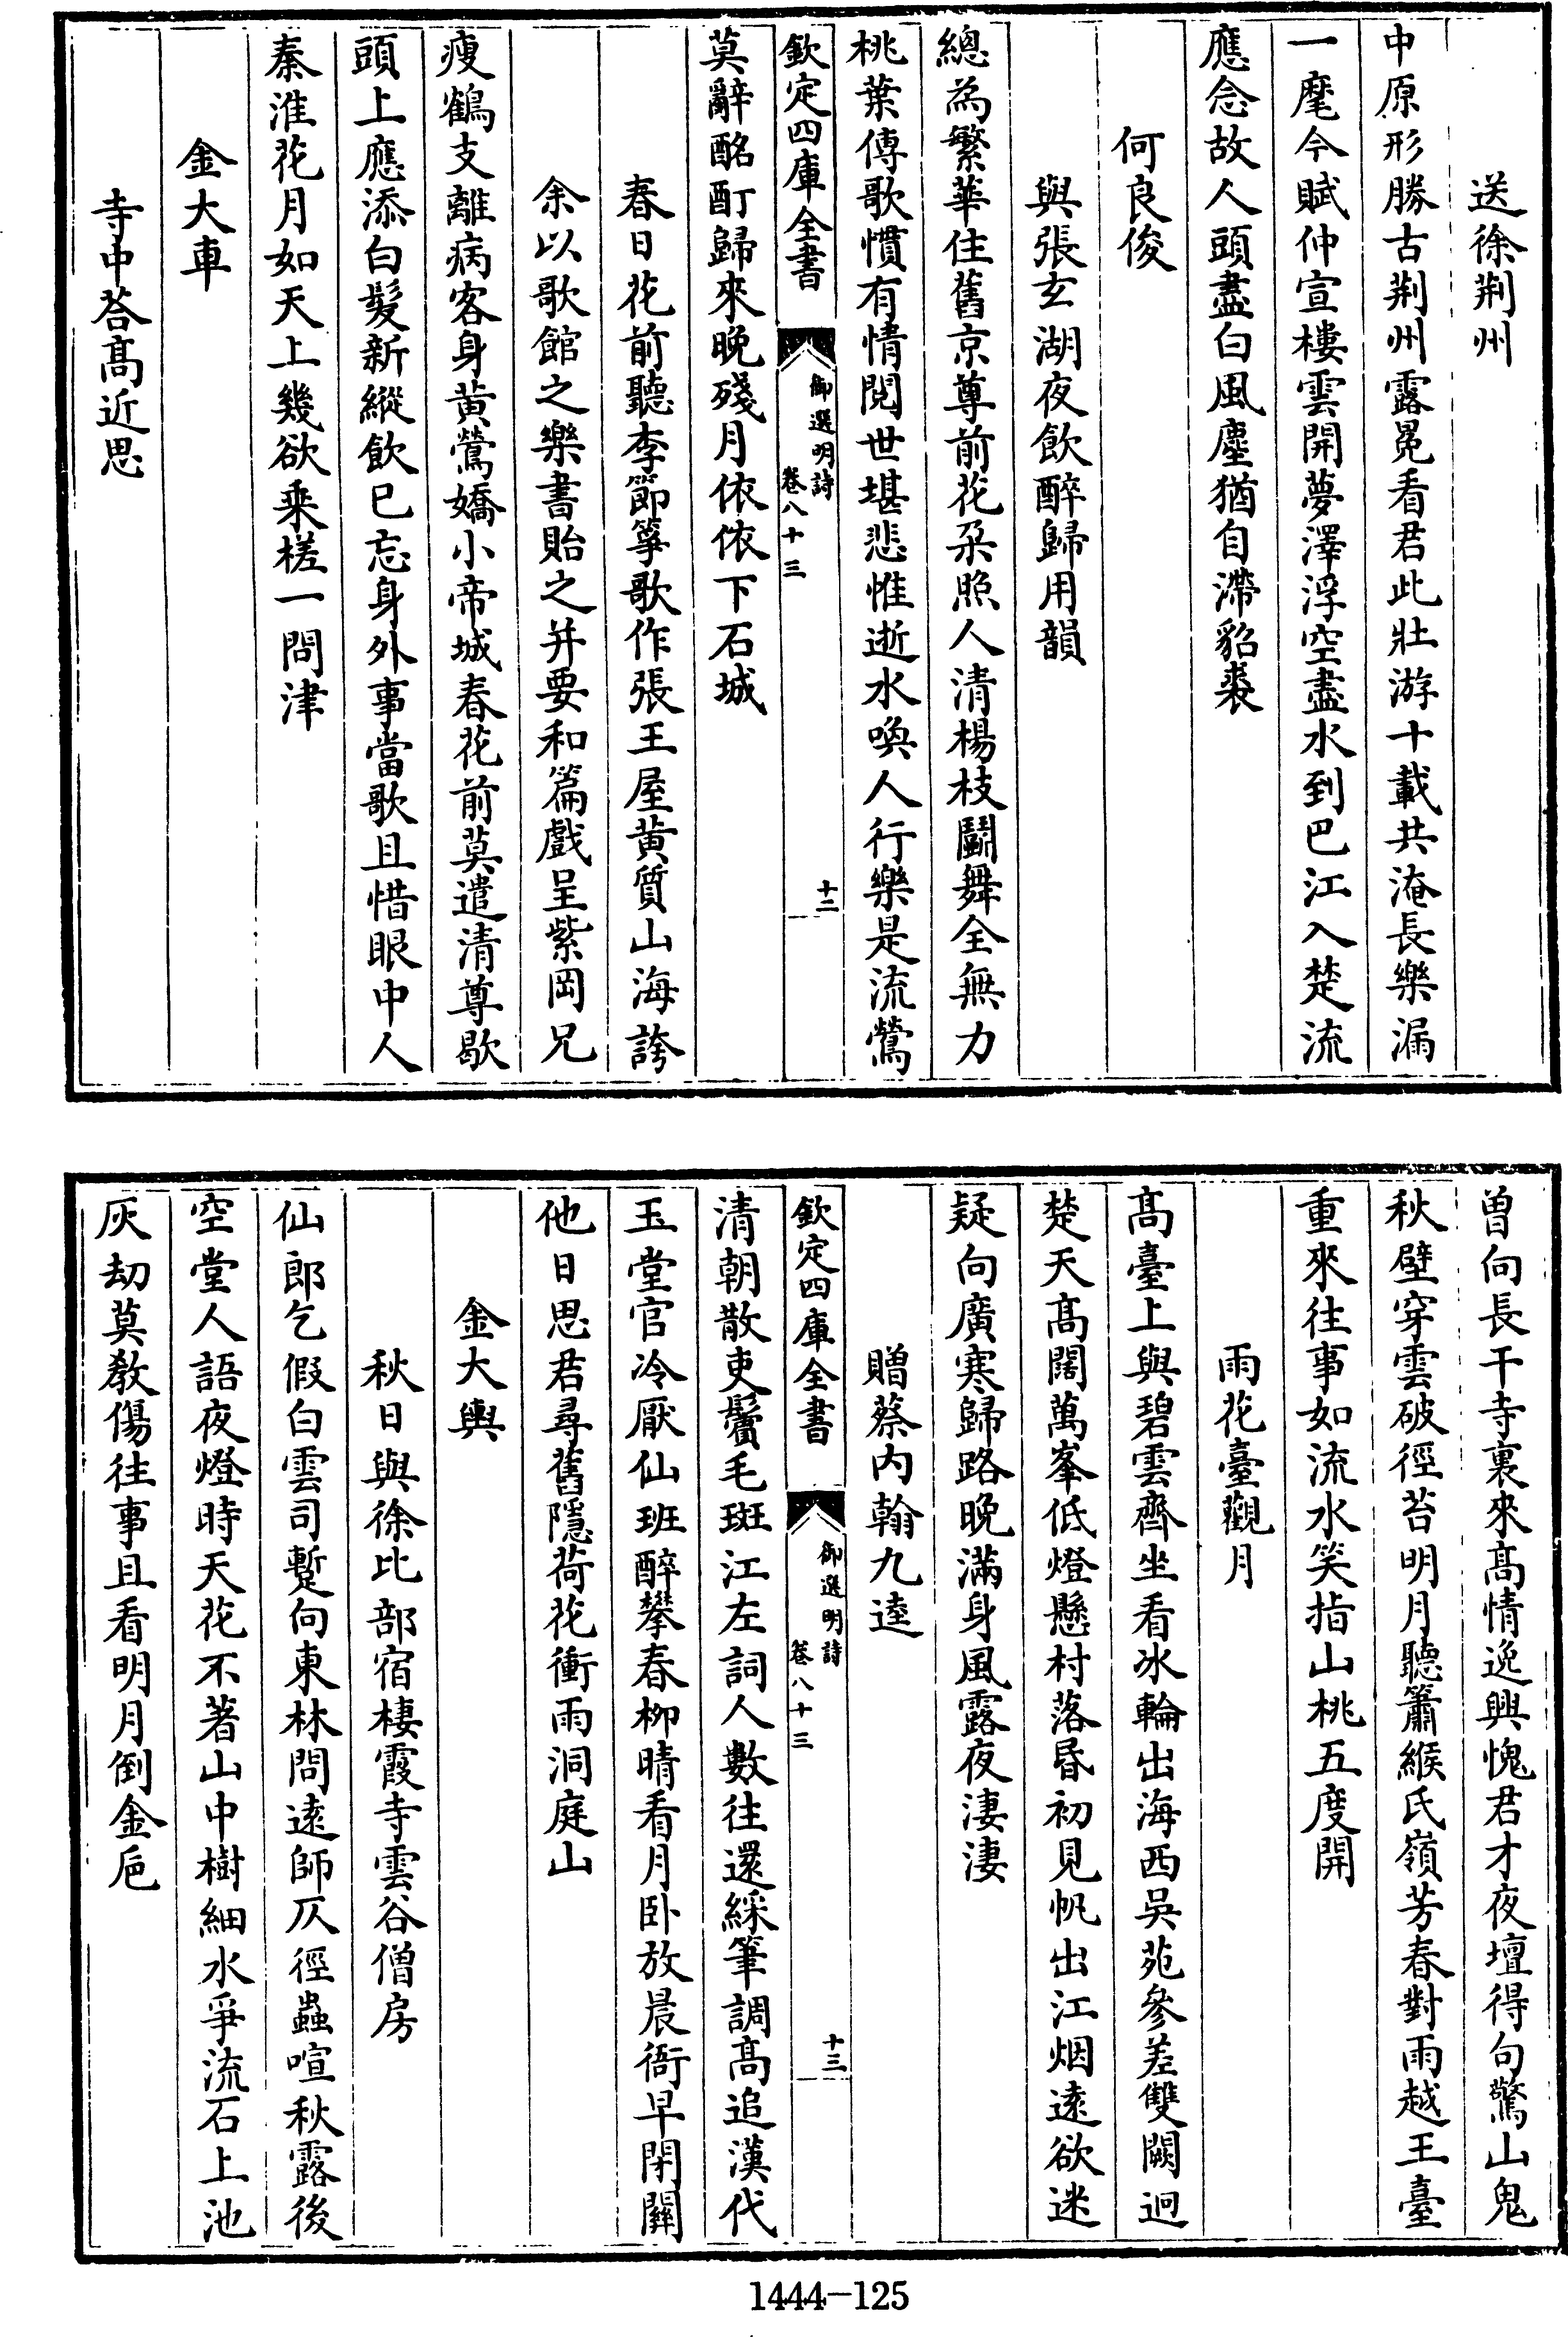 送徐荆州
中原形勝古荆州露冕看君此壯游十載共淹長樂漏
一麾今賦仲宣樓雲開夢澤浮空盡水到巴江入楚流
應念故人頭盡白風塵猶自滯貂裘
何良俊
與張玄湖夜飲醉歸用韻
總為繁華住舊京尊前花朶照人清楊枝鬭舞全無力
桃葉傳歌慣有情閱世堪悲惟逝水喚人行樂是流鶯
欽定四庫全書
御選明詩
卷八十三
十二
莫辭酩酊歸來晚殘月依依下石城
春日花前聽李節箏歌作張王屋黄質山海誇
余以歌館之樂書貽之并要和篇戲呈紫岡兄
瘦鶴支離病客身黄鶯嬌小帝城春花前莫遣清尊歇
頭上應添白髮新縱飲已忘身外事當歌且惜眼中人
秦淮花月如天上幾欲乘槎一問津
金大車
寺中荅髙近思
曽向長干寺裏來髙情逸興愧君才夜壇得句驚山鬼
秋壁穿雲破徑苔明月聽簫緱氏嶺芳春對雨越王臺
重來往事如流水笑指山桃五度開
雨花臺觀月
髙臺上與碧雲齊坐看冰輪出海西吳苑參差雙闕迥
楚天髙闊萬峯低燈懸村落昬初見帆出江烟遠欲迷
疑向廣寒歸路晚滿身風露夜淒淒
贈蔡内翰九逵
欽定四庫全書
御選明詩
卷八十三
十三
清朝散吏鬢毛斑江左詞人數往還綵筆調髙追漢代
玉堂官冷厭仙班醉攀春柳晴看月卧放晨衙早閉關
他日思君尋舊隱荷花衝雨洞庭山
金大輿
秋日與徐比部宿棲霞寺雲谷僧房
仙郎乞假白雲司蹔向東林問遠師仄徑蟲喧秋露後
空堂人語夜燈時天花不著山中樹細水爭流石上池
灰劫莫教傷往事且看明月倒金巵
1444-125